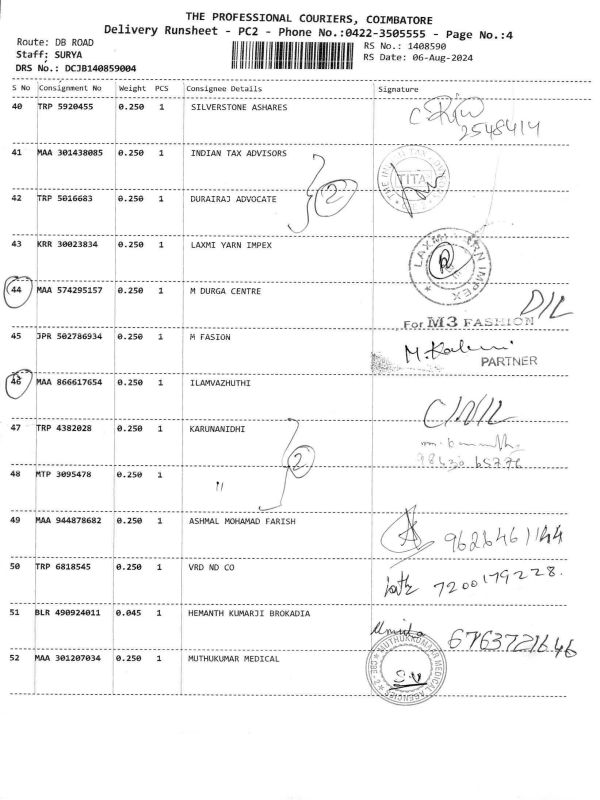 THE PROFESSIONAL COURIERS, COIMBATORE
Delivery Runsheet - PC2 - Phone No.:0422-3505555 - Page No.:4
Route: DB ROAD
RS No.: 1408590
Staff: SURYA
RS Date: 06-Aug-2024
DRS No.: DCJB140859004
S No Consignment No Weight PCS Consignee Details Signature
40 TRP 5920455 0.250 1 SILVERSTONE ASHARES
2548414
41 MAA 301438085 0.250 1 INDIAN TAX ADVISORS
TITA
2
42 TRP 5016683 0.250 1 DURAIRAJ ADVOCATE
43 KRR 30023834 0.250 1 LAXMI YARN IMPEX
LAXMI YARN IMPEX
44 MAA 574295157 0.250 1 M DURGA CENTRE
D/L
For M3 FASHION
45 JPR 502786934 0.250 1 M FASION
PARTNER
46 MAA 866617654 0.250 1 ILAMVAZHUTHI
47 TRP 4382028 0.250 1 KARUNANIDHI
98430 65776
2
48 MTP 3095478 0.250 1 "
49 MAA 944878682 0.250 1 ASHMAL MOHAMAD FARISH
9626461144
50 TRP 6818545 0.250 1 VRD ND CO
7200179228.
51 BLR 490924011 0.045 1 HEMANTH KUMARJI BROKADIA
52 MAA 301207034 0.250 1 MUTHUKUMAR MEDICAL
MUTHUKKUMAAR MEDICAL AGENCIES